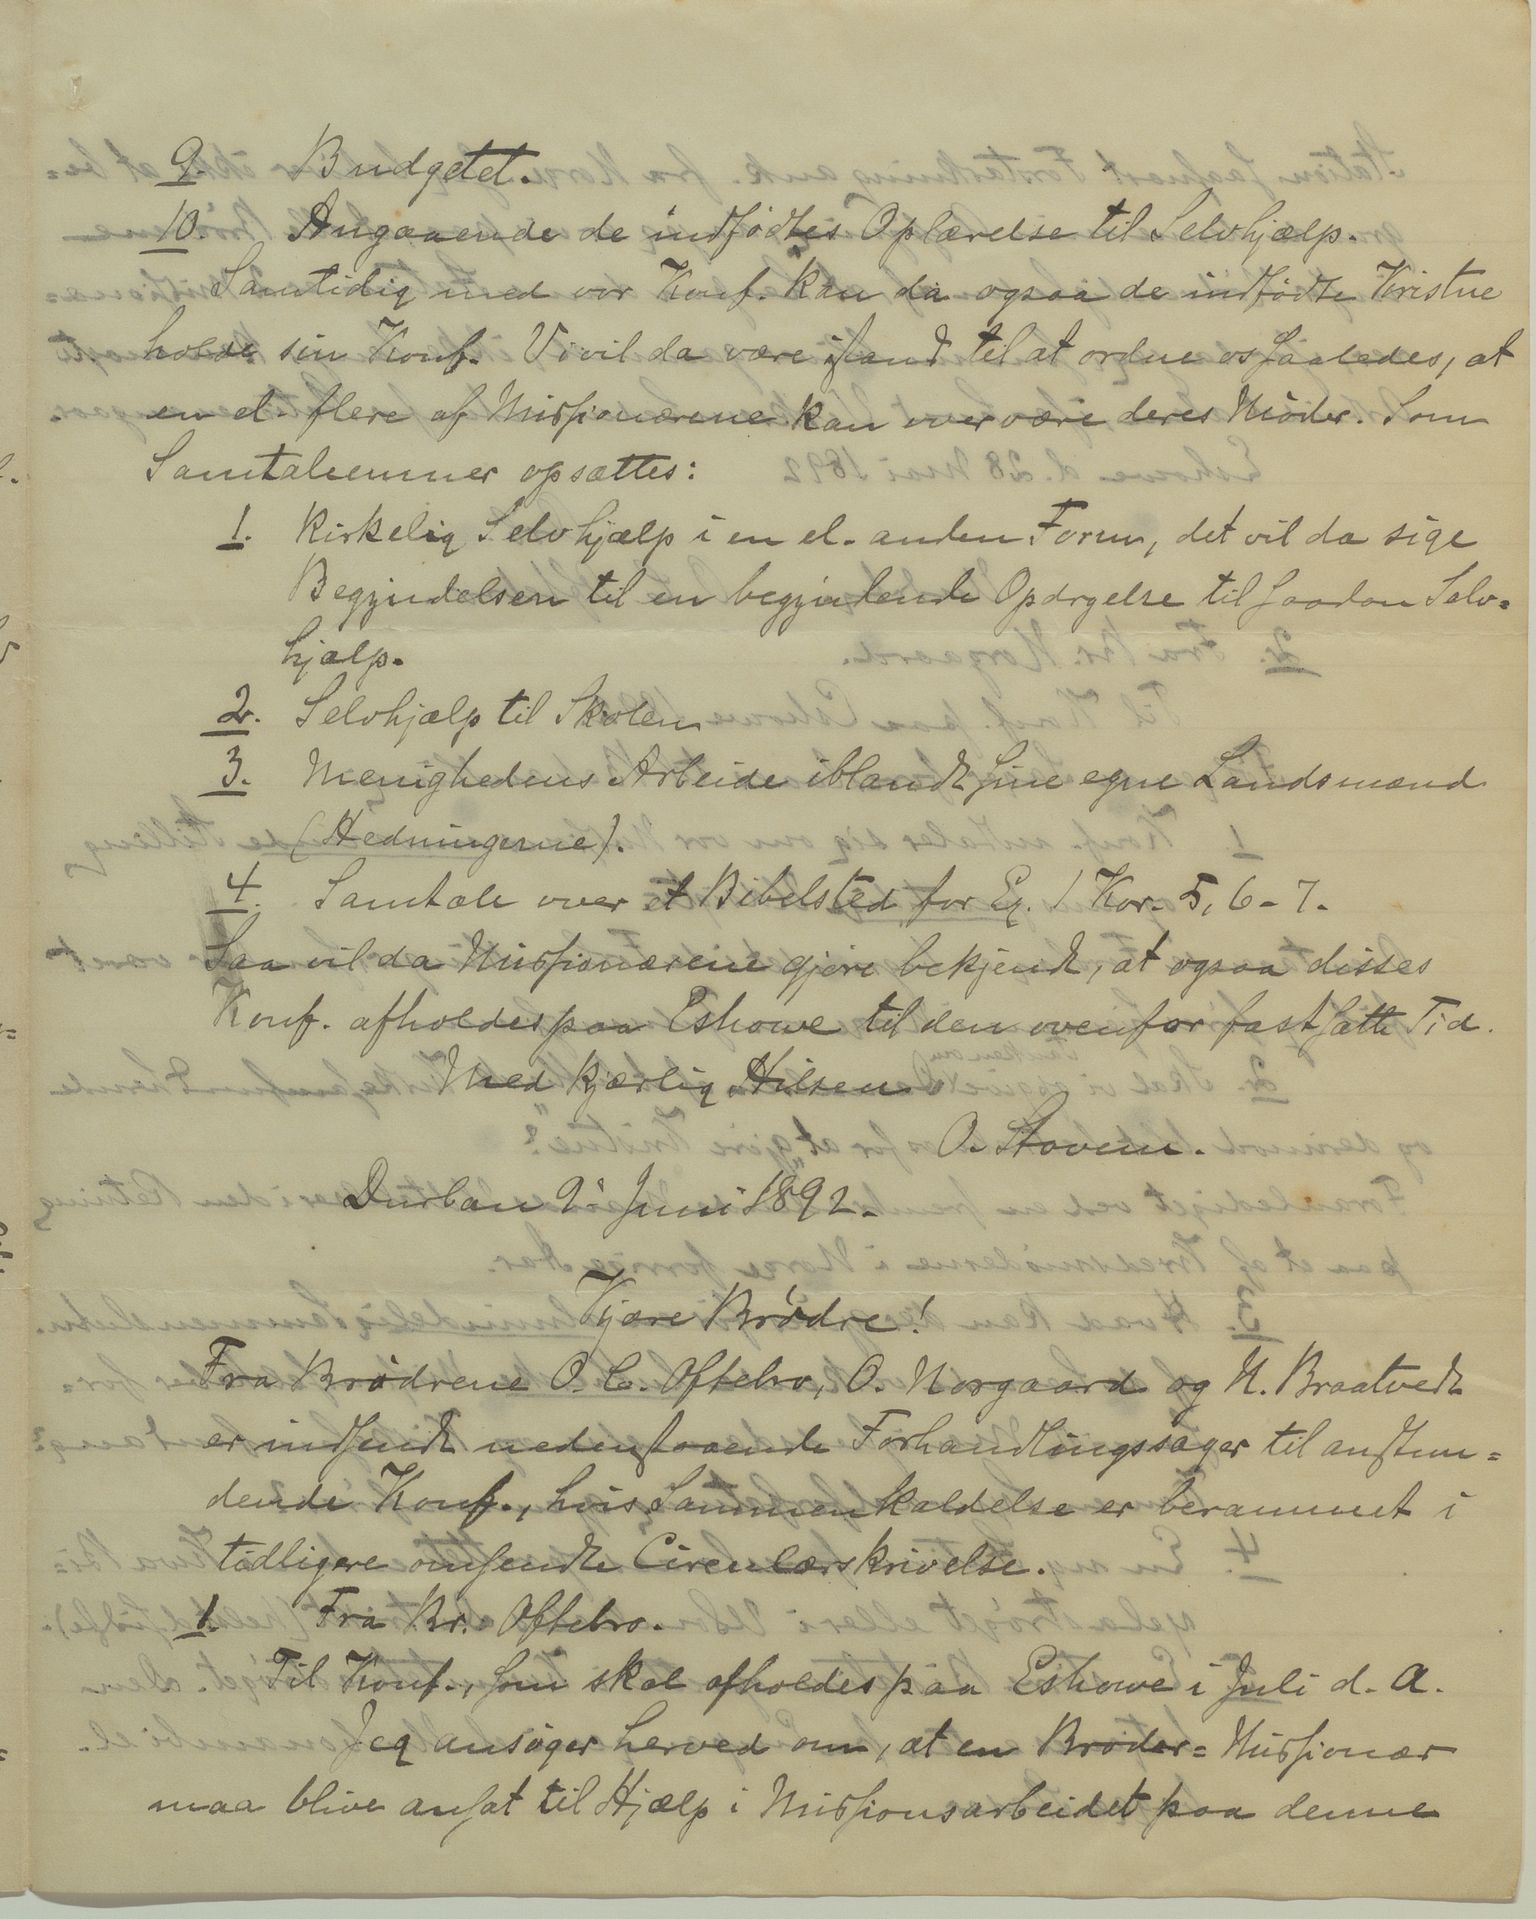 9. Budgetet.
10. Angaaende de indfødtes Oplærelse til Selvhjælp.
Samtidig med vor Konf. kan da ogsaa de indfødte Kristne
holde sin Konf. Vi vil da være istand til at ordne os saaledes, at
en el. flere af Missionærene kan overvære deres Møder. Som
Samtaleemner opsættes:
1. Kirkelig Selvhjælp i en el. anden Form, det vil da sige
Begyndelsen til en begyndende Opdrgelse til saadan Selv=
hjælp.
2. Selvhjælp til Skolen
3. Menighedens Arbeide iblandt sine egne Landsmænd
(Hedningerne).
4. Samtale over et Bibelsted for Ex. 1 Kor. 5, 6-7.
Saa vil da Missionærene gjøre bekjendt, at ogsaa disses
Konf. afholdes paa Eshowe til den ovenfor fastsatte Tid.
Med kjærlig Hilsen
O. Stavem.
Durban 9' Juni 1892.
Kjære Brødre!
Fra Brødrene O. C. Oftebro, O. Norgaard og N. Braatvedt
er indsendt nedenstaaende Forhandlingssager til anstun=
dende Konf., hvis Sammenkaldelse er berammet i
tidligere omsendte Circulærskrivelse.
1. Fra Br. Oftebro.
Til Konf., som skal afholdes paa Eshowe i Juli d. A.
Jeg ansøger herved om, at en Broder=Missionær
maa blive ansat til Hjælp i Missionsarbeidet paa denne